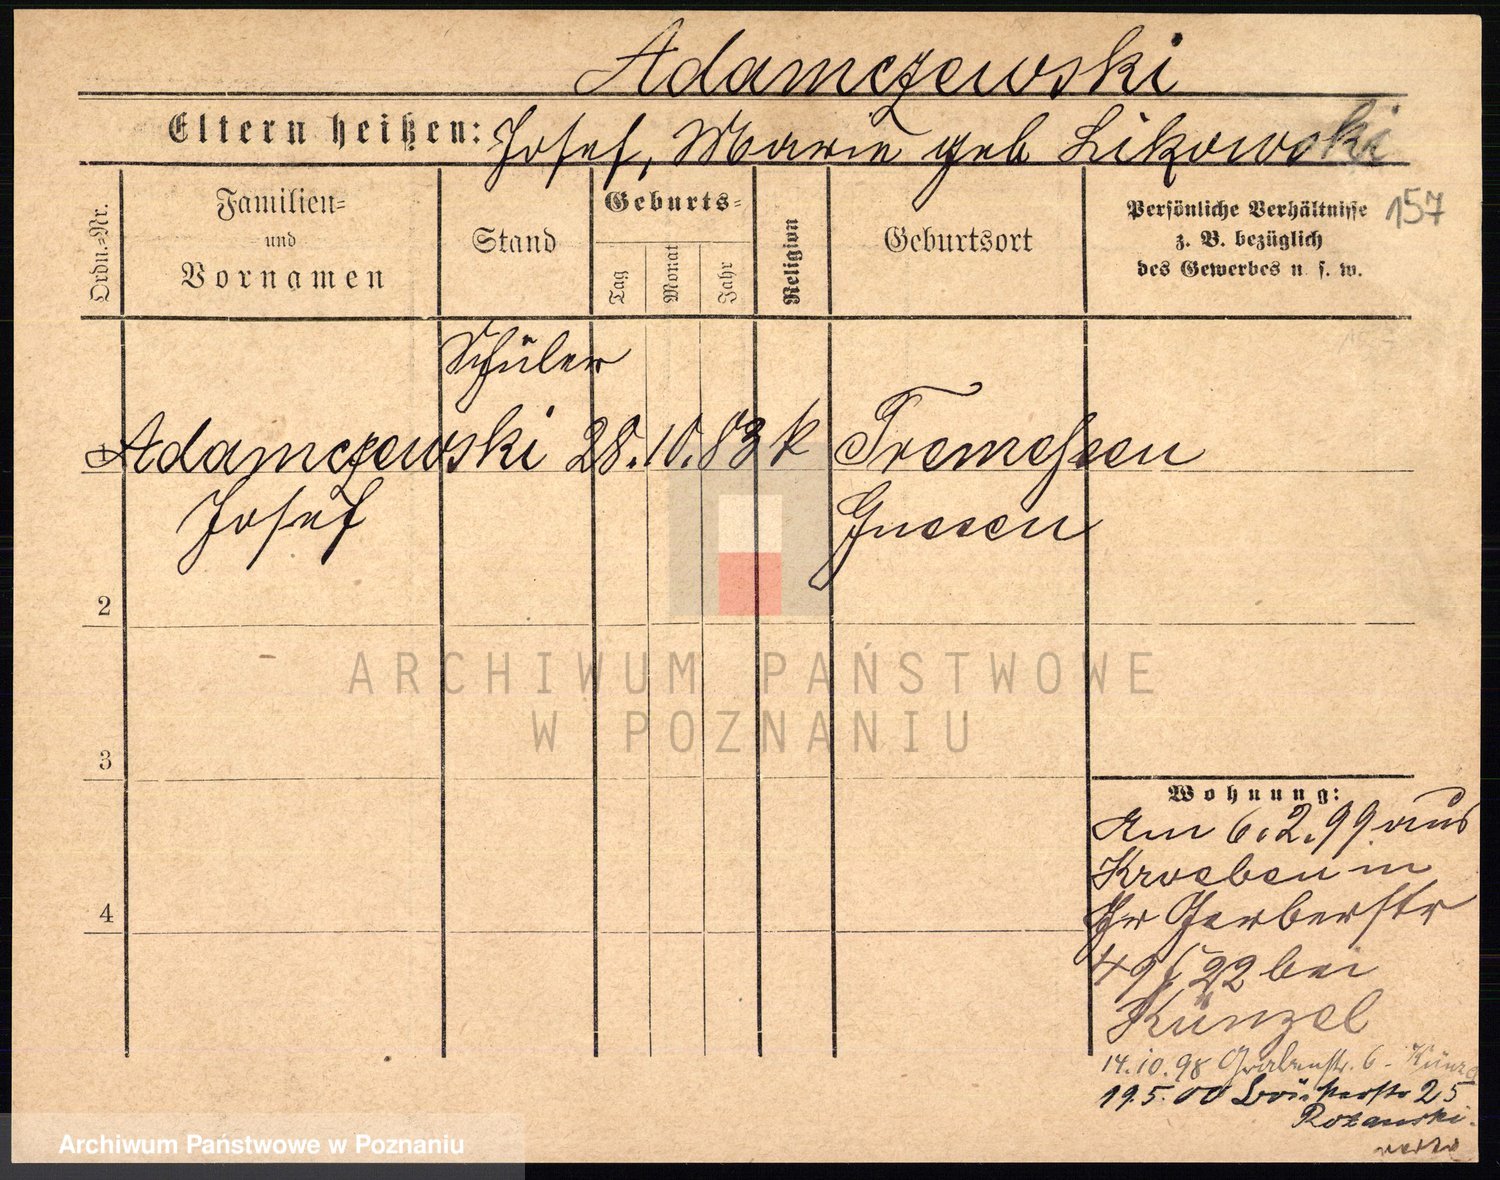 Adamczewski
Eltern heißen: Josef, Marie geb Likowski
Ordn.-Nr.
Familien- und Vornamen
Stand
Geburts-
Tag
Monat
Jahr
Religion
Geburtsort
Persönliche Verhältnisse
z. B. bezüglich
des Gewerbes u. s. w.
157
Schüler
1 Adamczewski 28. 10. 83 k Tremessen
Josef Gnesen
2
3
4
Wohnung:
Am 6.2.99 aus
Kroeben in
Gr Gerberstr
49 22 bei
Künzel
14.10.98 Grabenstr. 6 - Künzel
19.5.00 25
Rozanski.
ARCHIWUM PAŃSTWOWE
W POZNANIU
Archiwum Państwowe w Poznaniu